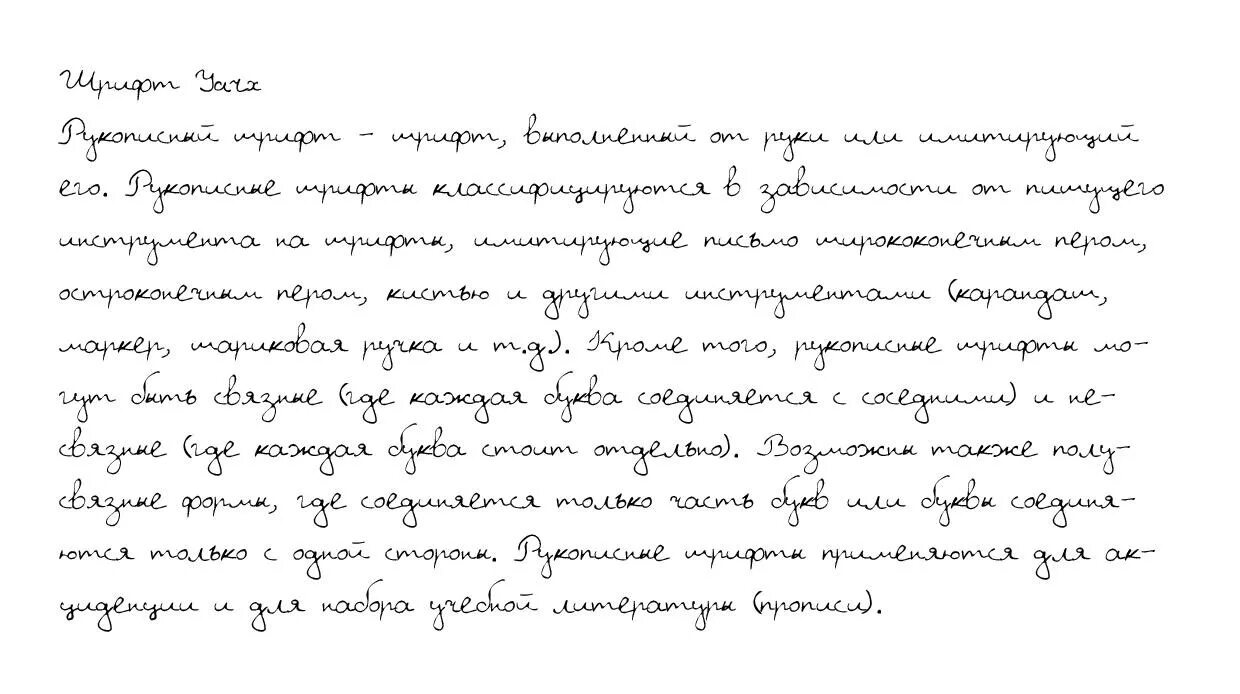 Шрифт Уачх
Рукописный шрифт - шрифт, выполненный от руки или имитирующий
его. Рукописные шрифты классифицируются в зависимости от пишущего
инструмента на шрифты, имитирующие письмо ширококонечным пером,
остроконечным пером, кистью и другими инструментами (карандаш,
маркер, шариковая ручка и т.д.). Кроме того, рукописные шрифты мо-
гут быть связные (где каждая буква соединяется с соседними) и не-
связные (где каждая буква стоит отдельно). Возможны также полу-
связные формы, где соединяется только часть букв или буквы соединя-
ются только с одной стороны. Рукописные шрифты применяются для ак-
циденции и для набора учебной литературы (прописи).